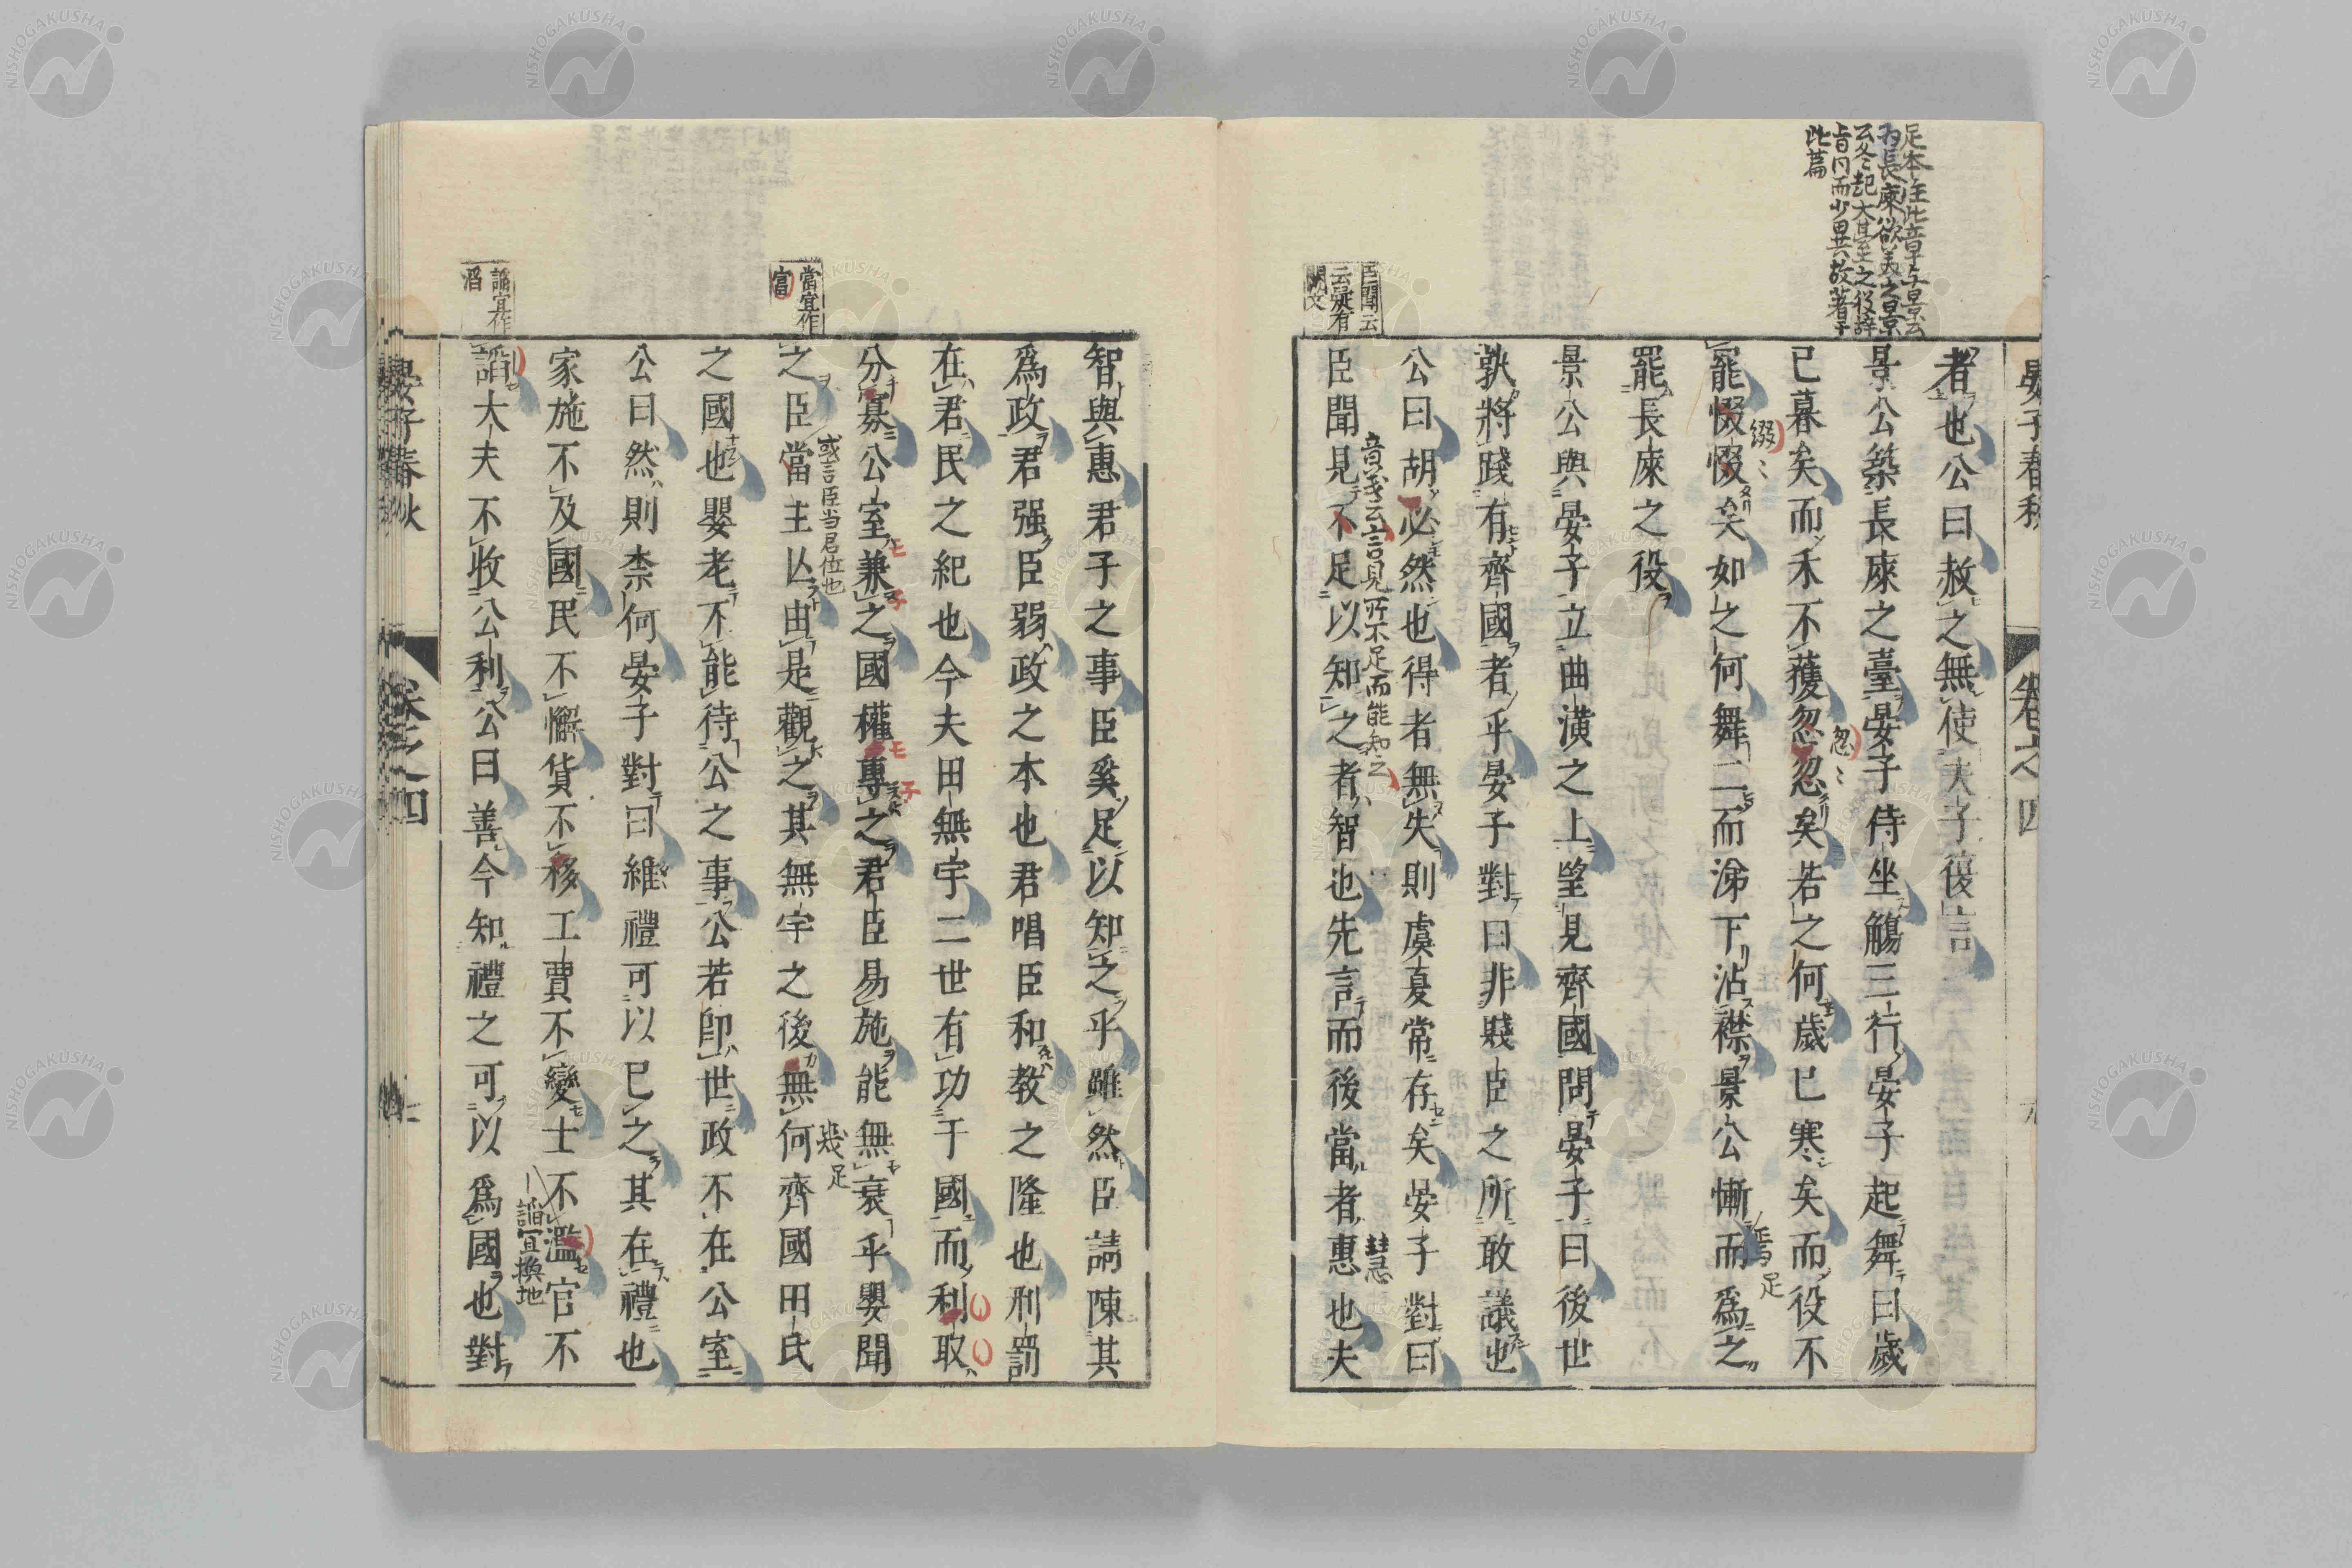 晏子春秋
卷之四
足本注此章与景公
為長庲欲美之景
公冬起大臺之役辞
旨同而少異故著于
此篇
者也公曰赦之無使夫子復言
景公築長庲之臺晏子侍坐觴三行晏子起舞曰歲
已暮矣而禾不穫忽忽矣若之何歲已寒矣而役不
忽〻
罷惙惙矣如之何舞二而涕下沾襟景公慚而爲之
綴〻
足
罷長庲之役
景公與晏子立曲潢之上望見齊國問晏子曰後世
孰將踐有齊國者乎晏子對曰非賤臣之所敢議也
公曰胡必然也得者無失則虞夏常存矣晏子對曰
臣聞見不足以知之者智也先言而後當者惠也夫
音義云言見所不足而能知之
慧
臣聞云
云疑有
闕文
智與惠君子之事臣奚足以知之乎雖然臣請陳其
爲政君强臣弱政之本也君唱臣和教之隆也刑罰
在君民之紀也今夫田無宇二世有功于國而利取
分寡公室兼之國權專之君臣易施能無衰乎嬰聞
之臣當主亾由是觀之其無宇之後無何齊國田氏
或言臣当君位也
幾
足
當宜作
富
之國也嬰老不能待公之事公若卽世政不在公室
公曰然則柰何晏子對曰維禮可以已之其在禮也
家施不及國民不懈貨不移工賈不變士不濫官不
謟宜換地
謟大夫不收公利公曰善今知禮之可以爲國也對
謟宜作
滔
晏子春秋
卷之四